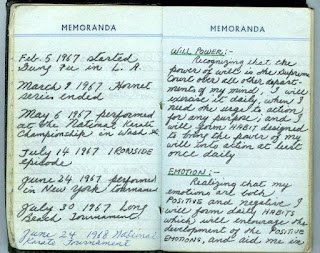 MEMORANDA
Feb. 5 1967 started
Dung Fu in L. A.
March 9 1967 Hornet
series ended
May 6 1967 performed
at the National Karate
Championship in Wash
July 14 1967 IRONSIDE
episode
June 24 1967 perform
in New York Tourname
July 30 1967 Long
Beach Tournament
June 24, 1968 National
Karate Tournament
MEMORANDA
WILL POWER:-
Recognizing that the
power of will is the supreme
court over all other depart-
ments of my mind, I will
exercise it daily, when I
need the urge to action
for any purpose; and I
will form HABIT designed
to bring the power of my
will into action at least
once daily
EMOTION:-
Realizing that my
emotions are both
POSITIVE and negative I
will form daily HABITS
which will encourage the
development of the POSITIVE
EMOTIONS, and aid me in